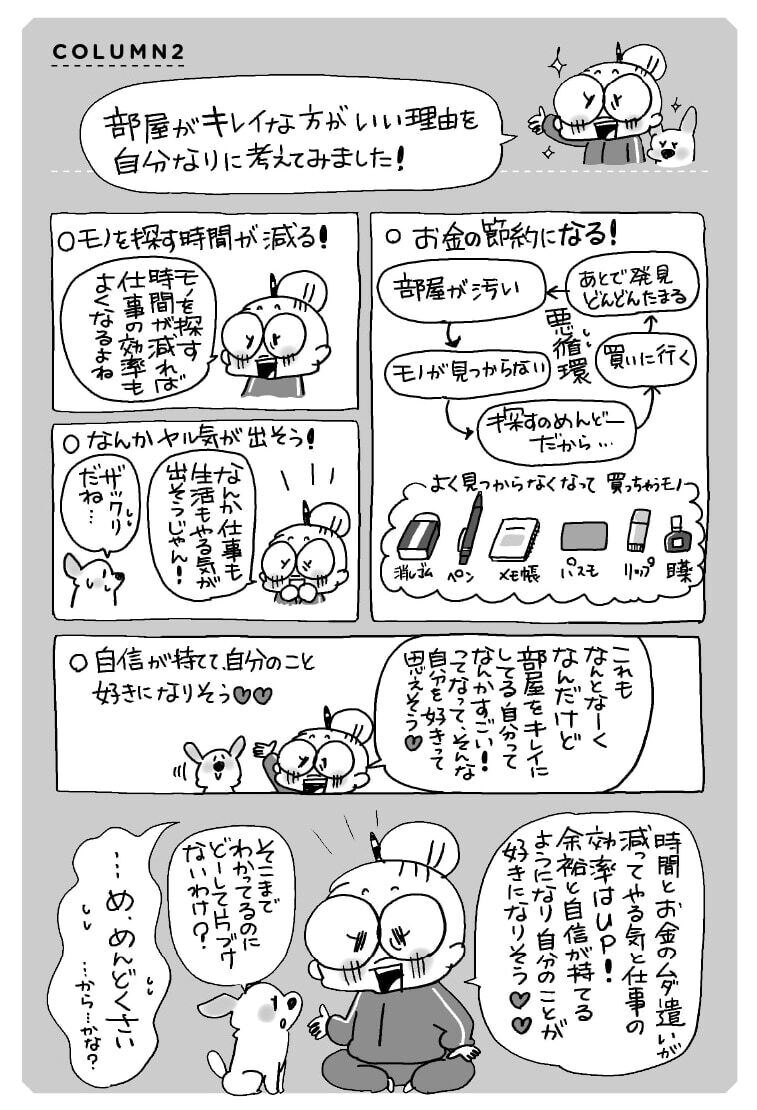 COLUMN2
部屋がキレイな方がいい理由を
自分なりに考えてみました！
○お金の節約になる！
部屋が汚い
モノが見つからない
探すのめんどー
だから…
買いに行く
あとで発見
どんどんたまる
悪循環
よく見つからなくなって買っちゃうモノ
消しゴム
ペン
メモ帳
パスモ
リップ
目薬
○モノを探す時間が減る！
モノを探す
時間が減れば
仕事の効率も
よくなるよね
○なんかヤル気が出そう！
なんか仕事も
生活もやる気が
出そうじゃん！
ザックリ
だね…
○自信が持てて、自分のこと
好きになりそう♥♥
これも
なんとなーく
なんだけど
部屋をキレイに
してる自分って
なんかすごい！
ってなって、そんな
自分を好きって
思えそう♥
時間とお金のムダ遣いが
減ってやる気と仕事の
効率はUP！
余裕と自信が持てる
ようになり自分のことが
好きになりそう♥♥
そこまで
わかってるのに
どーして片づけ
ないわけ？
…め、めんどくさい
…から…かな？